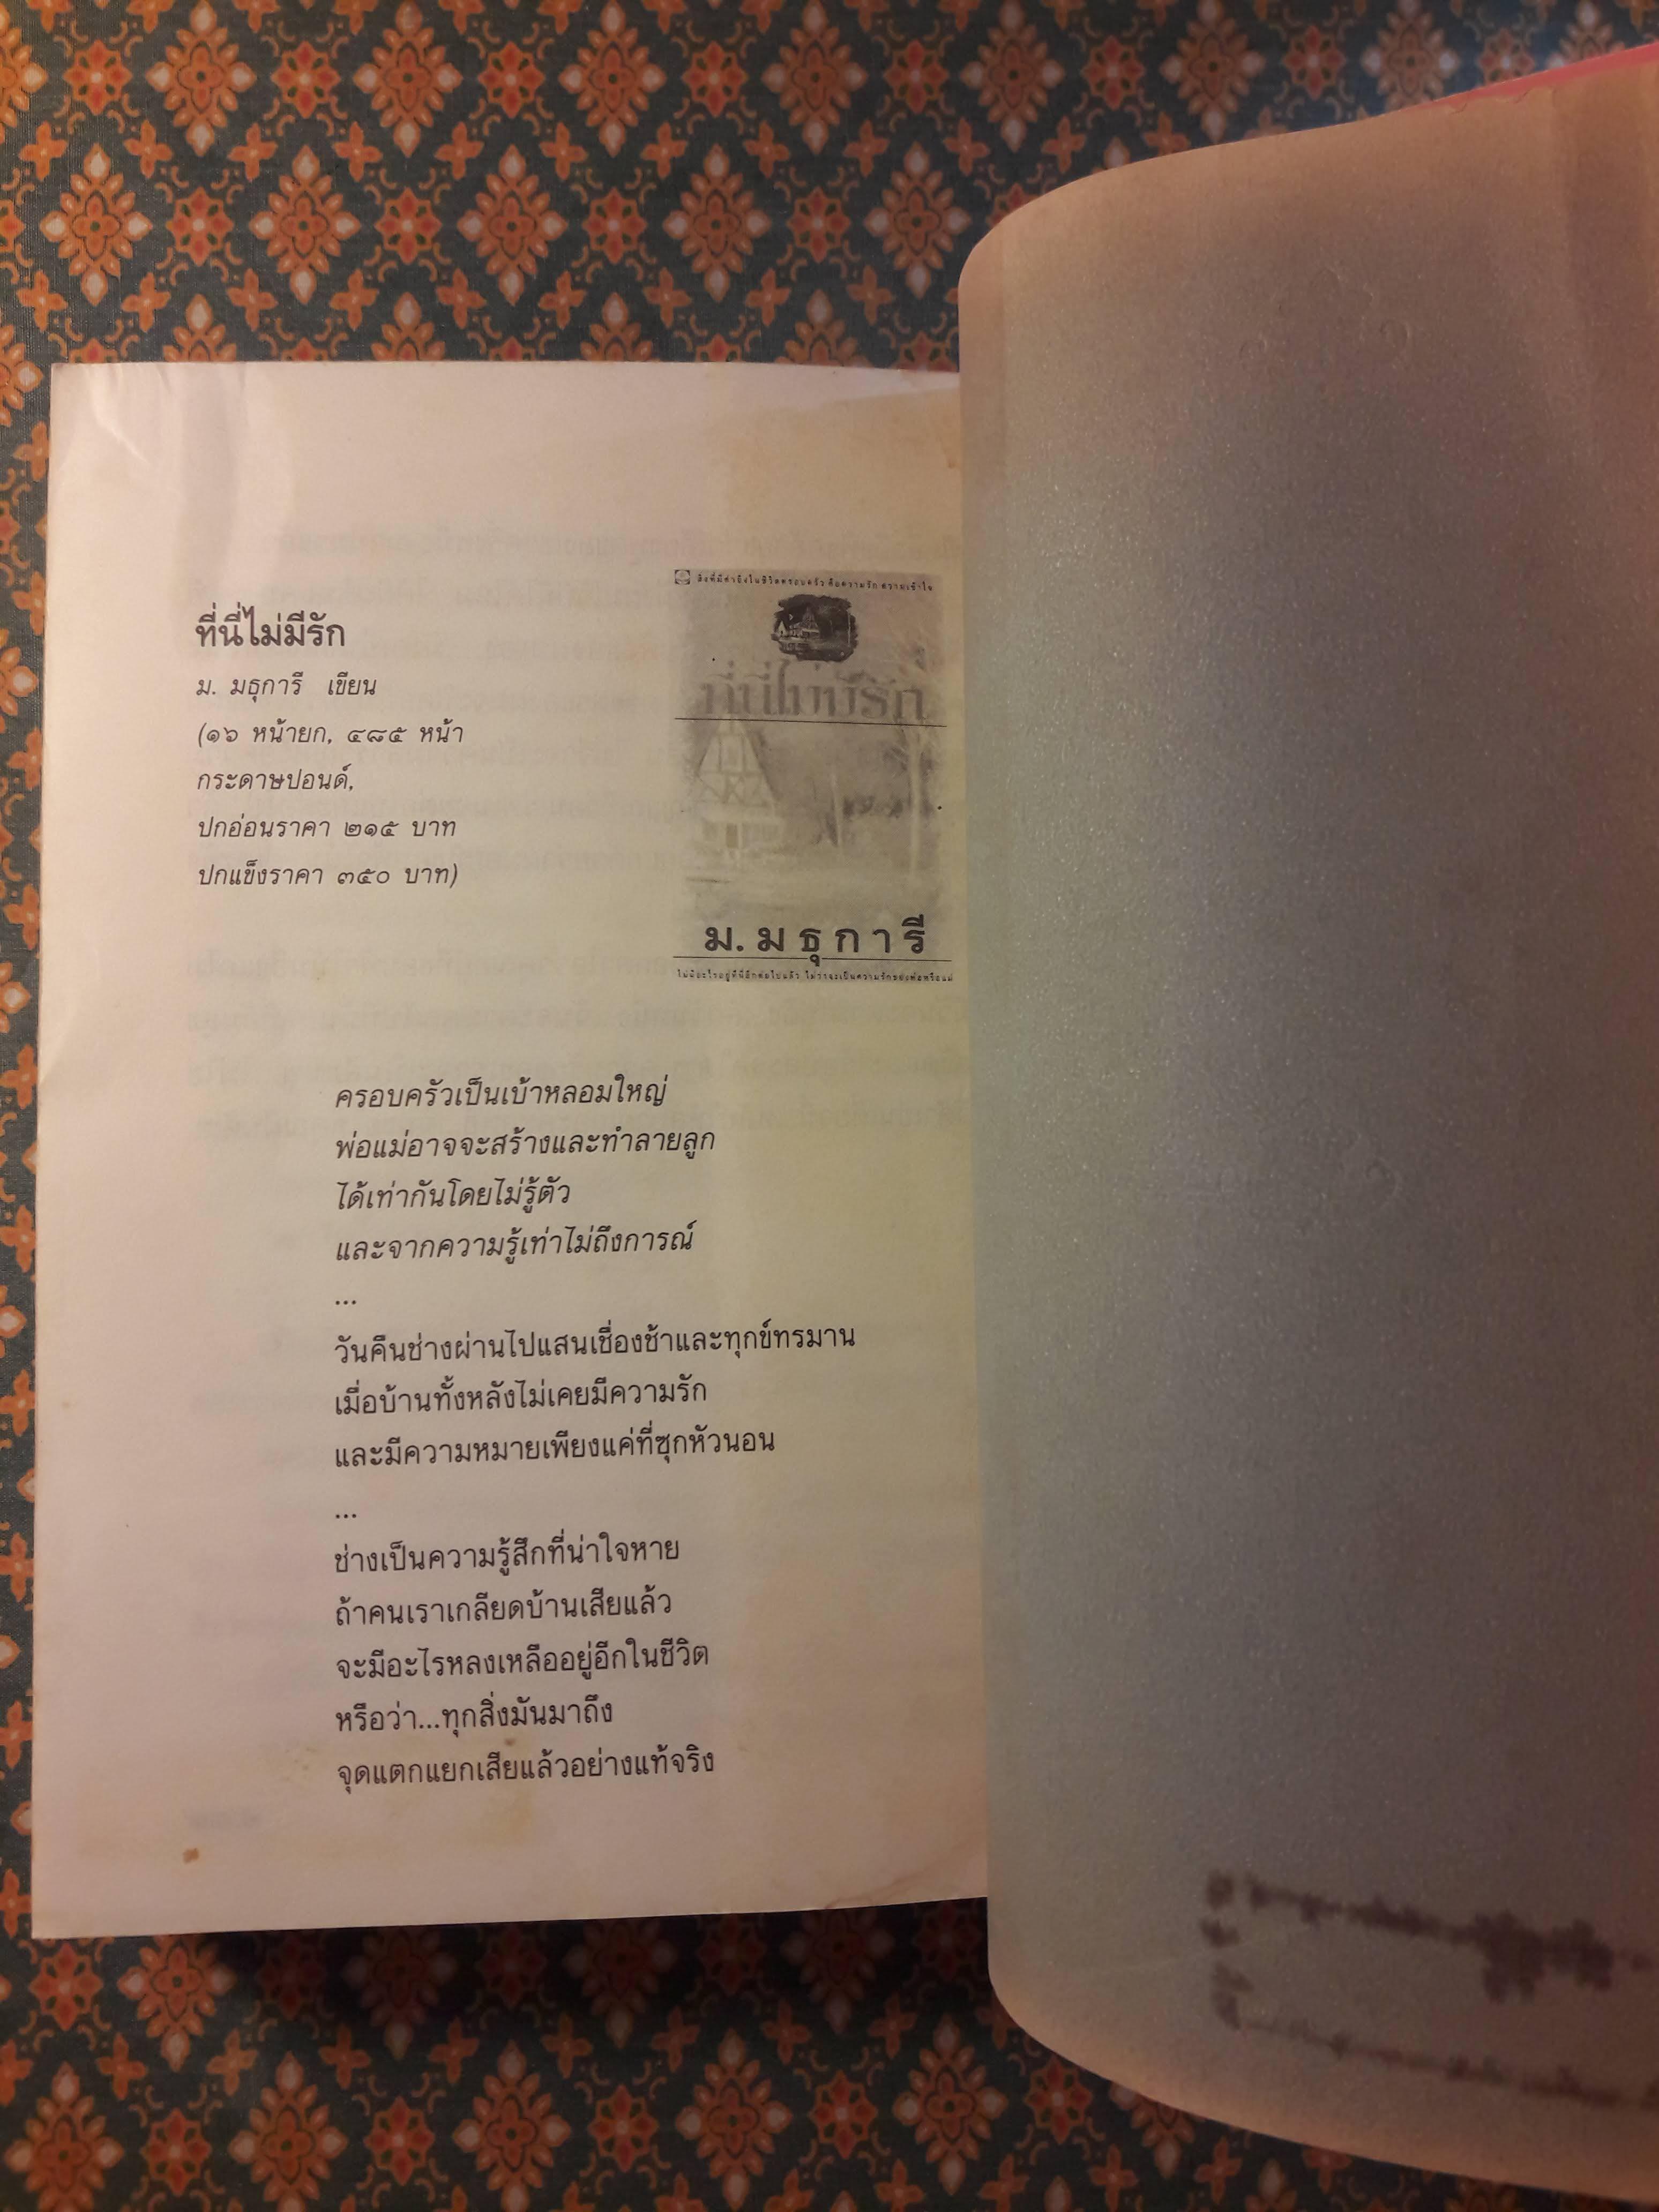 ที่นี่ไม่มีรัก
ม. มธุการี เขียน
(๑๖ หน้ายก, ๔๘๕ หน้า
กระดาษปอนด์,
ปกอ่อนราคา ๒๑๕ บาท
ปกแข็งราคา ๓๕๐ บาท)
สิ่งที่มีค่ายิ่งในชีวิตครอบครัว คือความรัก ความเข้าใจ
ที่นี่ไม่มีรัก
ม. มธุการี
ไม่มีอะไรอยู่ที่นี่อีกต่อไปแล้ว ไม่ว่าจะเป็นความรักของพ่อหรือแม่
ครอบครัวเป็นเบ้าหลอมใหญ่
พ่อแม่อาจจะสร้างและทำลายลูก
ได้เท่ากันโดยไม่รู้ตัว
และจากความรู้เท่าไม่ถึงการณ์
...
วันคืนช่างผ่านไปแสนเชื่องช้าและทุกข์ทรมาน
เมื่อบ้านทั้งหลังไม่เคยมีความรัก
และมีความหมายเพียงแค่ที่ซุกหัวนอน
...
ช่างเป็นความรู้สึกที่น่าใจหาย
ถ้าคนเราเกลียดบ้านเสียแล้ว
จะมีอะไรหลงเหลืออยู่อีกในชีวิต
หรือว่า...ทุกสิ่งมันมาถึง
จุดแตกแยกเสียแล้วอย่างแท้จริง